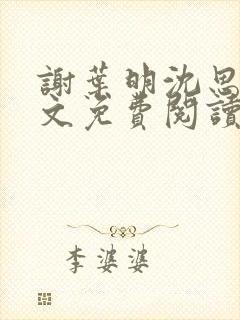 謝葉明沈思
文免費閱讀
李婆婆